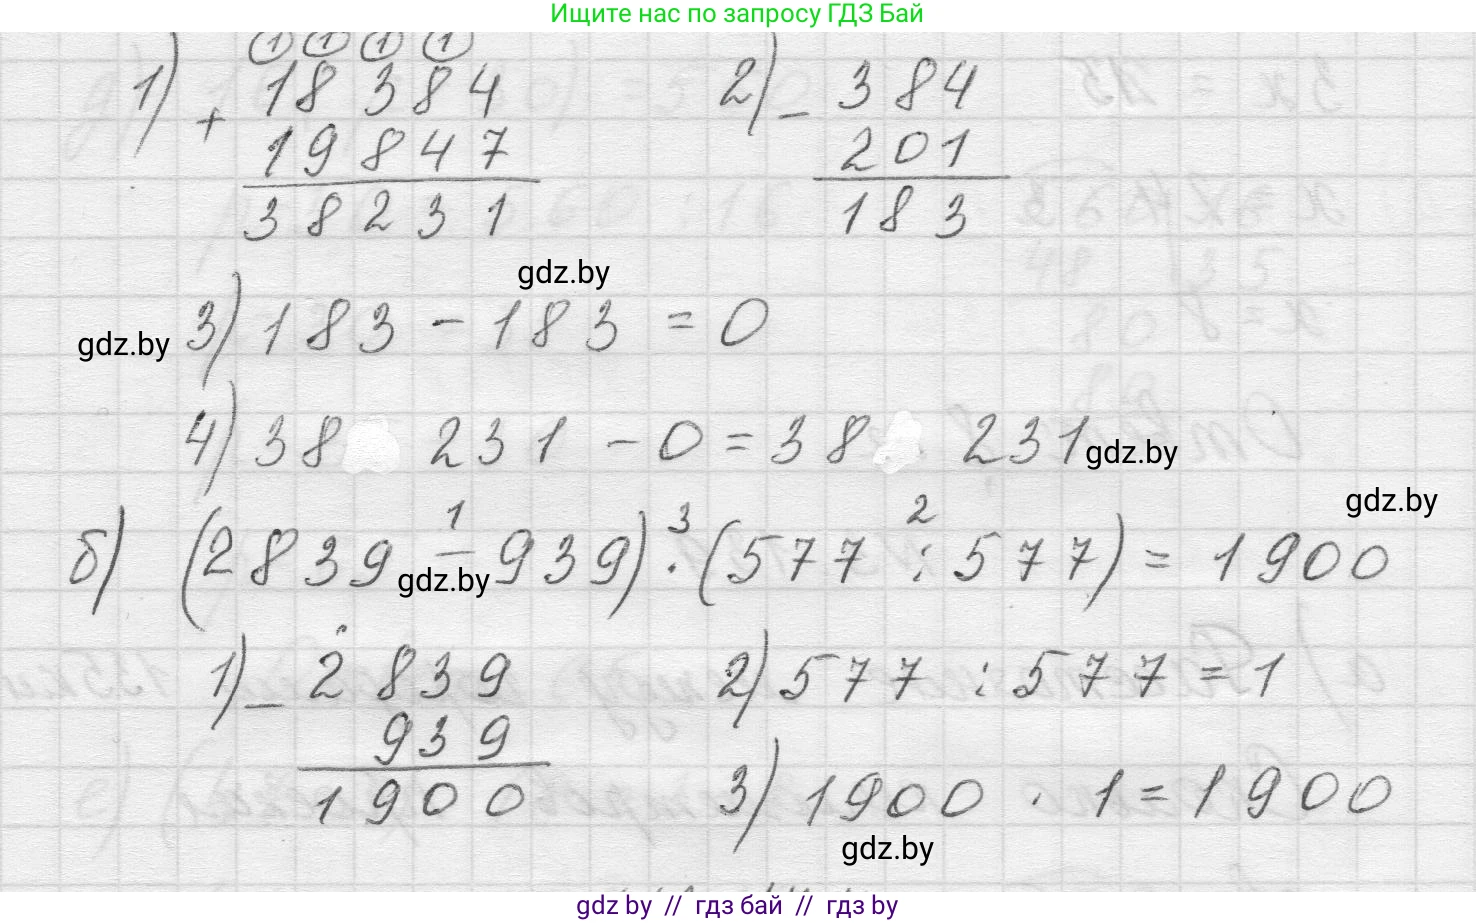 Ищите нас по запросу ГДЗ Бай
1 1 1 1
1) + 18 384    2) - 384
19 847    201
38 231    183
gdz.by
gdz.by 3) 183 - 183 = 0
4) 38 231 - 0 = 38 231 gdz.by
gdz.by
1    3    2
б) (2839 - 939) · (577 : 577) = 1900
gdz.by
1) - 2839    2) 577 : 577 = 1
939
1900    3) 1900 · 1 = 1900
gdz.by
gdz by // гдз бай // гдз by